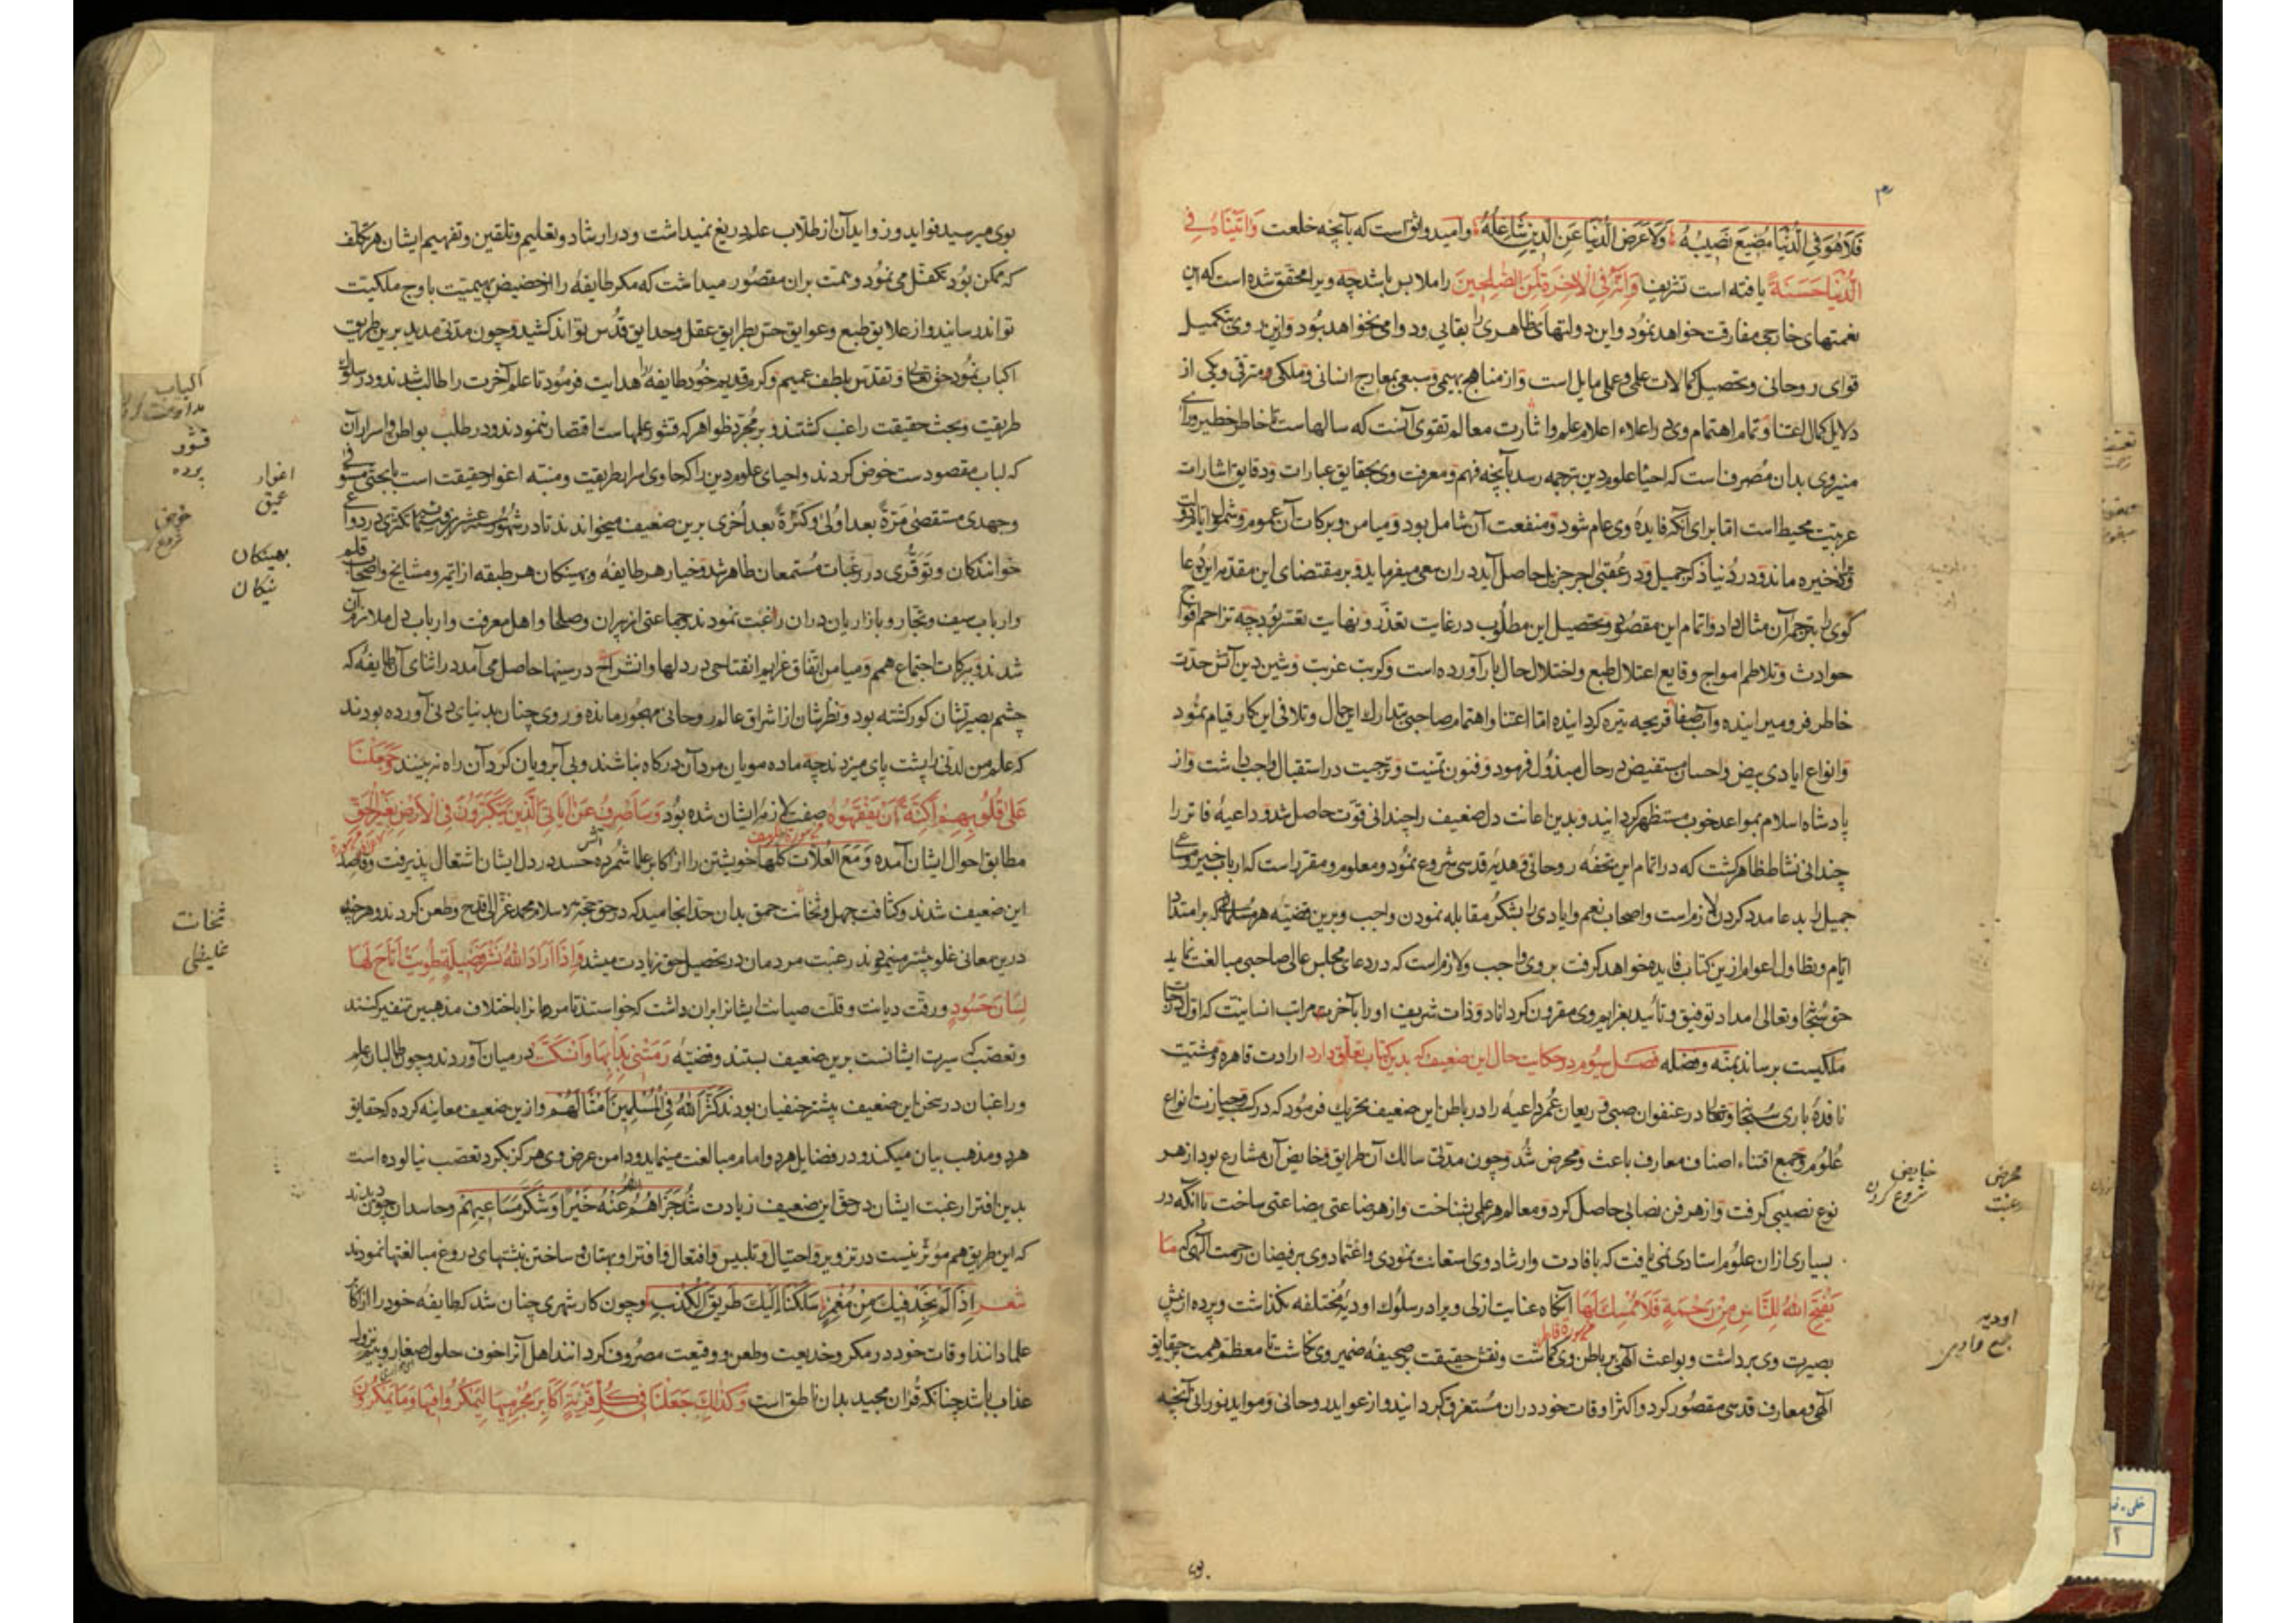 فَلَا هُوَ فِي الدُّنْيَا مُضِيعٌ نَصِيبَهُ وَلَا عَرَضُ الدُّنْيَا عَنِ الدِّينِ شَاغِلُهُ وامید واثق است که با آنچه خلعت وَآتَيْنَاهُ فِي
الدُّنْيَا حَسَنَةً یافته است تشریف وَاِنَّهُ فِي الْآخِرَةِ لَمِنَ الصَّالِحِينَ را ملابس باشد چه ویرا محقق شده است که این
نعمتهای خارجی مفارقت خواهد نمود و این دولتهای ظاهری را بقایی و دوامی نخواهد بود و ازین روی بتکمیل
قوای روحانی و تحصیل کمالات علمی و عملی مایل است و از مناهج بهیمی و سبعی بمعارج انسانی و ملکی مترقی و یکی از
دلایل کمال اعتنا و تمام اهتمام وی را اعلاء اعلام علم و اثارت معالم تقوی آنست که سالهاست تا خاطر خطیر و رای
منیر وی بدان مصرف است که احیاء علوم دین بترجمه رسد با آنچه فهم و معرفت وی بحقایق عبارات و دقایق اشارات
عربیت محیط است اما برای آنکه فایده وی عام شود و منفعت آن شامل بود و میامن و برکات آن عموم و شمول یابد و
ذخیره ماند و در دنیا ذکر جمیل و در عقبی اجر جزیل حاصل آید دران سعی میفرماید و بر مقتضای این مقدمه این دعا
گوی را بترجمه آن مثال داد و اتمام این مقصود و تحصیل این مطلوب در غایت تعذر و نهایت تعسر بود چه تزاحم افواج
حوادث و تلاطم امواج وقایع اعتلال طبع و اختلال حال بار آورده است و کربت غربت و شین دین آتش حدت
خاطر فرو میرانیده و آب صفا قریحه تیره کردانیده اما اعتنا و اهتمام صاحبی بتدارک این حال و تلافی این کار قیام نمود
و انواع ایادی بیض و احسان مستفیض در حال مبذول فرمود و فنون تمنیت و ترجیت در استقبال واجب داشت و از
پادشاه اسلام بمواعد خوب مستظهر کردانید و بدین اعانت دل ضعیف را چندانی قوت حاصل شد و داعیه فاتر را
چندانی نشاط ظاهر کشت که در اتمام این تحفه روحانی و هدیه قدسی شروع نمود و معلوم و مقرر است که ارباب خیر و مساعی
جمیل را بدعا مدد کردن لازم است و اصحاب نعم و ایادی را بشکر مقابله نمودن واجب و برین قضیه هر مسلمان که بر امتداد
ایام و تطاول اعوام ازین کتاب فایده خواهد کرفت بر وی واجب و لازم است که در دعای مجلس عالی صاحبی مبالغت نماید
حق سبحانه وتعالی امداد توفیق و تأیید بعزایم وی مقرون کرداناد و ذات شریف او را بآخر مراتب انسانیت که اول درجات
ملکیست برساند بمنه و فضله فصل سیوم در حکایت حال این ضعیف که بدین کتاب تعلق دارد ارادت قاهره و مشیت
نافذه باری سبحانه وتعالی در عنفوان صبی و ریعان عمر داعیه را در باطن این ضعیف تحریک فرمود که در کسب و حیازت انواع
علوم و جمع اقتناء اصناف معارف باعث و محرض شد و چون مدتی سالک آن طرایق و خایض آن مشارع بود از هر
نوع نصیبی کرفت و از هر فن نصابی حاصل کرد و معالم هر علمی بشناخت و از هر بضاعتی بضاعتی ساخت تا آنکه در
بسیاری ازان علوم استادی نمی یافت که بافادت و ارشاد وی استعانت نمودی و اعتماد وی بر فیضان رحمت الهی که مَا
يَفْتَحِ اللَّهُ لِلنَّاسِ مِنْ رَحْمَةٍ فَلَا مُمْسِكَ لَهَا آنکاه عنایت ازلی ویرا در سلوک اودیه مختلفه نکذاشت و پرده از پیش
بصیرت وی برداشت و بواعث الهی بر باطن وی کماشت و نقش حقیقت بر صحیفه ضمیر وی نکاشت تا معظم همت بر حقایق
الهی و معارف قدسی مقصور کرد و اکثر اوقات خود دران مستغرق کردانید و از عواید روحانی و مواید نورانی آنچه
محرض
رغبت
خایض
شروع کردن
اودیه
جمع وادی
بوی میرسید فواید و زواید آن از طلاب علم دریغ نمیداشت و در ارشاد و تعلیم و تلقین و تفهیم ایشان هر تکلف
که ممکن بود تکفل می نمود و همت بران مقصور میداشت که مکر طایفه را از حضیض بهیمیت باوج ملکیت
تواند رسانید و از علایق طبع و عوایق حس بطرایق عقل و حدایق قدس تواند کشید و چون مدتی مدید برین طریق
اکباب نمود حق تعالی و تقدس بلطف عمیم و کرم قدیم خود طایفه را هدایت فرمود تا علم آخرت را طالب شدند و در سلوک
طریقت و بحث حقیقت راغب کشتند و بر مجرد ظواهر که قشور علمهاست اقتصار ننمودند و در طلب بواطن و اسرار آن
که لباب مقصودست خوض کردند و احیای علوم دین را که حاوی اسرار طریقت و منبه اغوار حقیقت است ببحثی مستوفی
وجهدی مستقصی مَرَّةً بعد اُولی وَكَرَّةً بعد اُخری برین ضعیف میخواندند تا در شهور
خوانندکان و توقری در رغبات مستمعان ظاهر شد و خیار هر طایفه و بهینکان هر طبقه از ائمه و مشایخ و اصحاب قلم
و ارباب سیف و تجار و بازاریان دران رغبت نمودند و جماعتی از پیران و صلحا و اهل معرفت و ارباب دل ملازم آن
شدند و ببرکات اجتماع همم و میامن اتفاق عزایم انفتاحی در دلها و انشراحی در سینها حاصل می آمد در اثنای آن طایفه که
چشم بصیرتشان کور کشته بود و نظرشان از اشراق عالم روحانی مهجور مانده و روی چنان بدنیای دنی آورده بودند
که علم من لدنی را پشت پای میزدند چه ماده مویان مرد آن درکاه نباشند و بی آبرویان کرد آن راه نه بینند وَجَعَلْنَا
عَلَى قُلُوبِهِمْ أَكِنَّةً أَنْ يَفْقَهُوهُ صفت لازم ایشان شده بود وَسَأَصْرِفُ عَنْ آيَاتِيَ الَّذِينَ يَتَكَبَّرُونَ فِي الْأَرْضِ بِغَيْرِ الْحَقِّ
مطابق احوال ایشان آمده وَمَعَ الْعُلَّاتِ كُلِّهَا خویشتن را از اکابر علما شمرده آتش حسد در دل ایشان اشتعال پذیرفت و قاصد
این ضعیف شدند و کثافت جهل و ثخانت حمق بدان حد انجامید که در حق حجة الاسلام محمد غزالی قدح و طعن کردند و هر چند
درین معانی غلو بیشتر مینمودند رغبت مردمان در تحصیل حق زیادت میشد وَإِذَا أَرَادَ اللَّهُ نَشْرَ فَضِيلَةٍ طُوِيَتْ أَتَاحَ لَهَا
لِسَانَ حَسُودٍ و رقت دیانت و قلت صیانت ایشانرا بران داشت که خواستند تا مردمانرا باختلاف مذهبین تنفیر کنند
و تعصب که سیرت ایشانست برین ضعیف بستند و قضیه رَمَتْنِي بِدَائِهَا وَانْسَلَّتْ در میان آوردند و چون طالبان علم
و راغبان در سخن این ضعیف بیشتر حنفیان بودند كَثَّرَ اللَّهُ فِي الْمُسْلِمِينَ أَمْثَالَهُمْ و ازین ضعیف معاینه کرده که حقایق
هر دو مذهب بیان میکند و در فضایل هر دو امام مبالغت مینماید و دامن عرض وی هرکز بکرد تعصب نیالوده است
بدین افترا رغبت ایشان در حق این ضعیف زیادت شد جَزَاهُمُ اللَّهُ عَنْهُ خَيْرًا وَشَكَرَ مَسَاعِيَهُمْ و حاسدان چون دیدند
که این طریق هم مؤثر نیست در تزویر و احتیال و تلبیس و افتعال و افترا و بهتان و ساختن نبشتهای دروغ مبالغتها نمودند
شعر اِذَا لَمْ نَجِدْ فِيكَ مِنْ مَغْمَزٍ سَلَكْنَا اِلَيْكَ طَرِيقَ الْكَذِبِ و چون کار شهری چنان شد که طایفه خود را از اکابر
علما دانند اوقات خود در مکر و خدیعت و طعن و وقیعت مصروف کردانند اهل آنرا خوف حلول صغار و بیم نزول
عذاب باشد چنانکه قرآن مجید بدان ناطق است وَكَذَلِكَ جَعَلْنَا فِي كُلِّ قَرْيَةٍ أَكَابِرَ مُجْرِمِيهَا لِيَمْكُرُوا فِيهَا وَمَا يَمْكُرُونَ
اکباب
قشور
پرده
اغوار
عمیق
خوض
بهینکان
نیکان
ثخانت
غلیظی